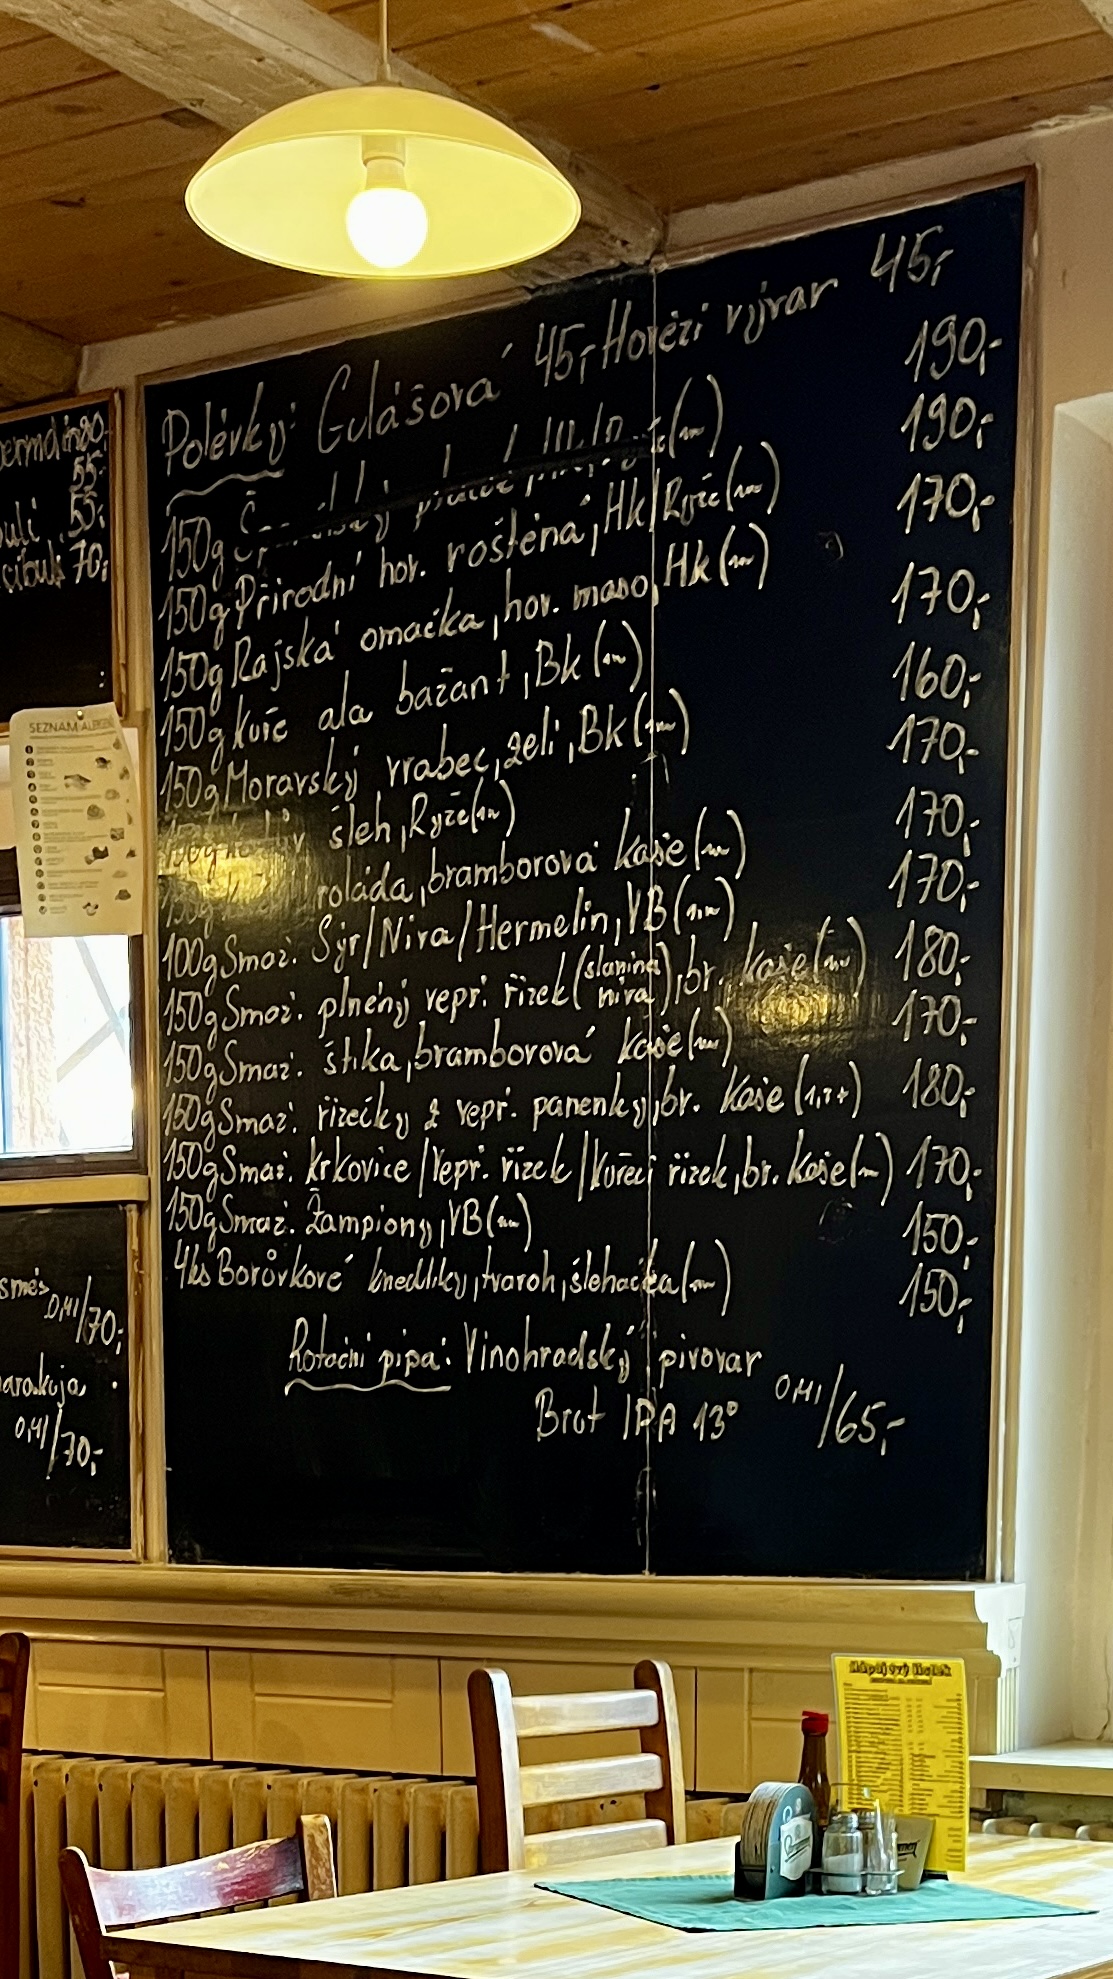 Polévky: Gulášová 45,- Hovězí vývar 45,-
150g ptáček 190,-
150g Přírodní hov. roštěná, Hk/Ryže 190,-
150g Rajská omáčka, hov. maso, Hk 170,-
150g kuře ala bažant, Bk 170,-
150g Moravský vrabec, zelí, Bk 160,-
150g šleh, Ryže 170,-
150g roláda, bramborová kaše 170,-
100g Smaž. Sýr/Niva/Hermelín, VB 170,-
150g Smaž. plněný vepř. řízek (slanina niva), br. kaše 180,-
150g Smaž. štika, bramborová kaše 170,-
150g Smaž. řízečky z vepř. panenky, br. kaše (1,3,7) 180,-
150g Smaž. krkovice/Vepř. řízek/Kuřecí řízek, br. kaše 170,-
150g Smaž. Žampiony, VB 150,-
4ks Borůvkové knedlíky, tvaroh, šlehačka 150,-
Rotační pípa: Vinohradský pivovar
Brut IPA 13° 0,4l/65,-
80,-
55,-
55,-
cibulí 70,-
SEZNAM ALERGENŮ
směs
0,4l/70,-
marakuja
0,4l/70,-
Nápojový lístek